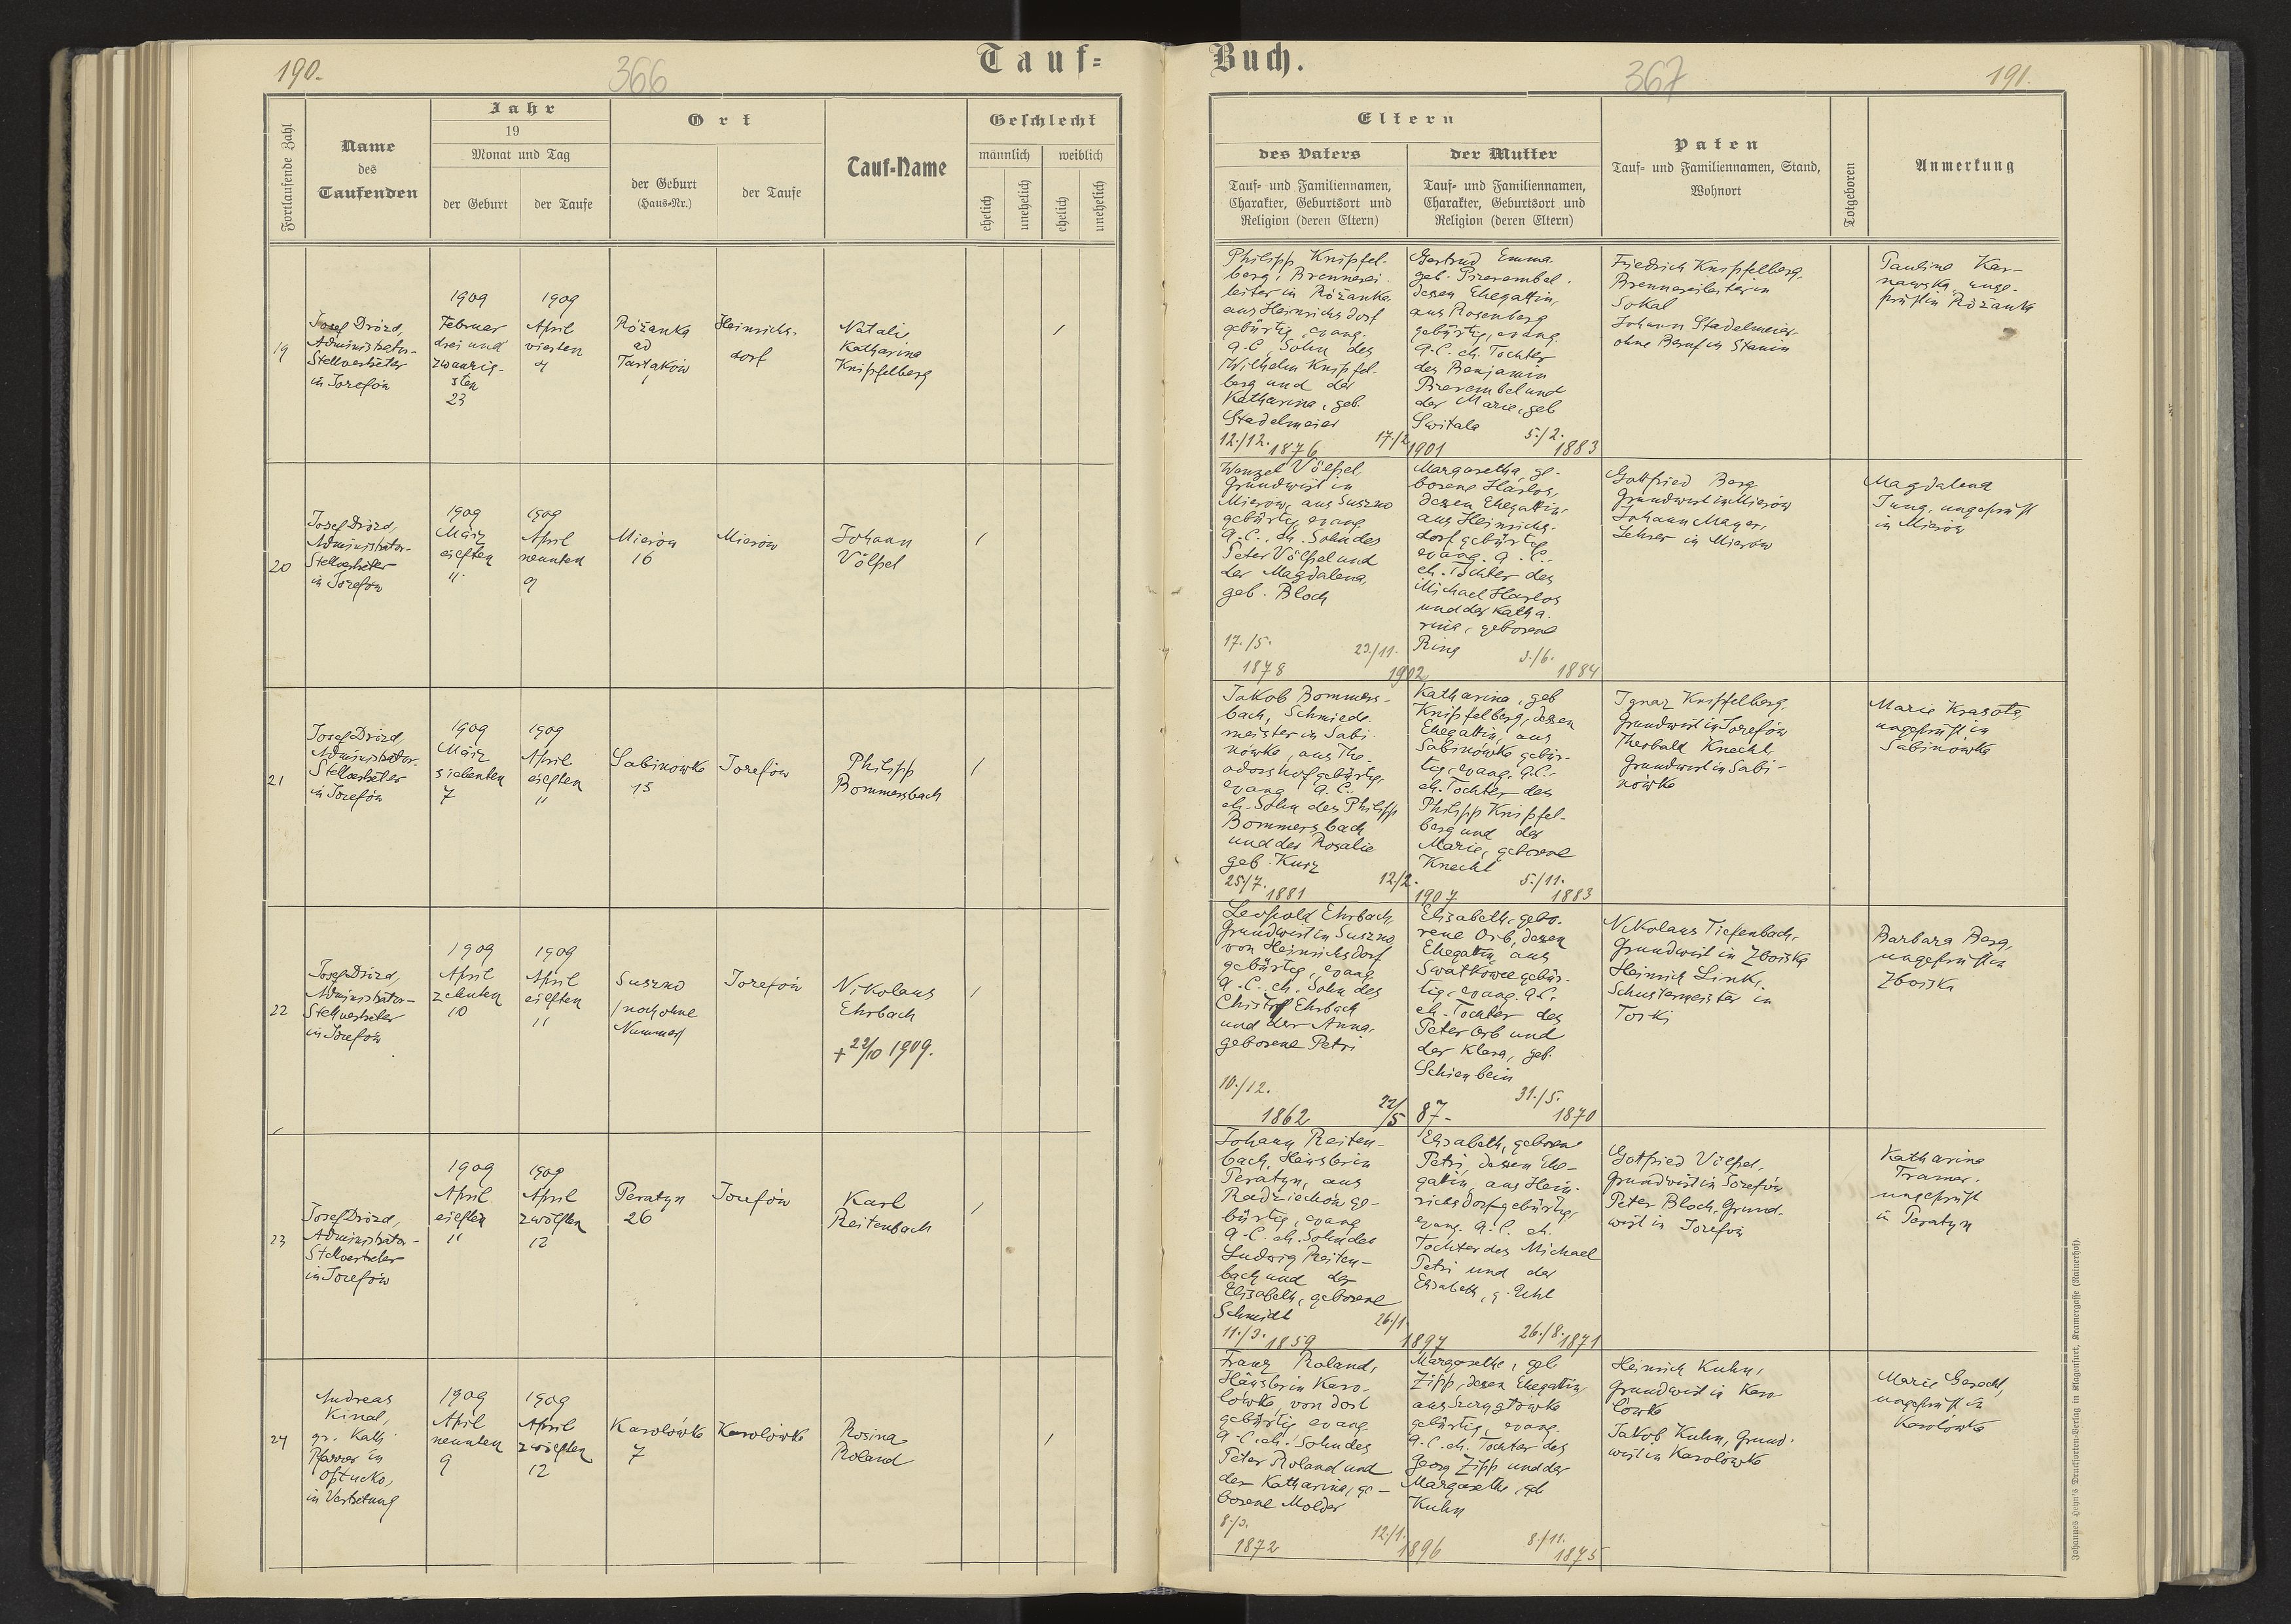 190.
366
Tauf=
Fortlaufende Zahl
Name
des
Taufenden
Jahr
19
Monat und Tag
der Geburt
der Taufe
Ort
der Geburt
(Haus=Nr.)
der Taufe
Tauf=Name
Geschlecht
männlich
weiblich
ehelich
unehelich
ehelich
unehelich
19
Josef Drozd,
Administrator-
Stellvertreter
in Josefów
1909
Februar
drei und
zwanzig-
sten
23
1909
April
vierten
4
Różanka
ad
Tartaków
1
Heinrichs-
dorf
Natalie
Katharina
Knipfelberg
/
20
Josef Drozd,
Administrator-
Stellvertreter
in Josefów
1909
März
eilften
11
1909
April
neunten
9
Mierów
16
Mierów
Johann
Völpel
/
21
Josef Drozd,
Administrator-
Stellvertreter
in Josefów
1909
März
siebenten
7
1909
April
eilften
11
Sabinowka
15
Josefów
Philipp
Bommersbach
/
22
Josef Drozd,
Administrator-
Stellvertreter
in Josefów
1909
April
zehnten
10
1909
April
eilften
11
Suszno
/noch ohne
Nummer/
Josefów
Nikolaus
Ehrbach
+ 22/10 1909.
/
23
Josef Drozd,
Administrator-
Stellvertreter
in Josefów
1909
April
eilften
11
1909
April
zwölften
12
Peratyn
26
Josefów
Karl
Reitenbach
/
24
Andreas
Kinal,
gr. Kath.
Pfarrer in
in Vertretung
1909
April
neunten
9
1909
April
zwölften
12
Karolówka
7
Karolówka
Rosina
Roland
/
Buch.
367
191.
Eltern
des Vaters
Tauf= und Familiennamen,
Charakter, Geburtsort und
Religion (deren Eltern)
der Mutter
Tauf= und Familiennamen,
Charakter, Geburtsort und
Religion (deren Eltern)
Paten
Tauf= und Familiennamen, Stand,
Wohnort
Totgeboren
Anmerkung
Philipp Knipfel-
berg, Brennerei-
leiter in Różanka
aus Heinrichsdorf
gebürtig, evang.
A.C., Sohn des
Wilhelm Knipfel-
berg und der
Katharina, geb.
Stadelmeier
12./12. 1876
17/2 1901
Gertrud Emma
geb. Przerembel,
dessen Ehegattin,
aus Rosenberg
gebürtig, evang.
A.C. eh. Tochter
des Benjamin
Przerembel und
der Marie, geb
Switala
5./2. 1883
Friedrich Knipfelberg,
Brennereileiter in
Sokal
Johann Stadelmeier
ohne Beruf in Stanin
Pauline Kar-
nawska, unge-
prüft in Różanka
Wenzel Völpel,
Grundwirt in
Mierów, aus Suszno
gebürtig, evang.
A.C., eh. Sohn des
Peter Völpel und
der Magdalena,
geb. Bloch
17./5.
1878
23./11.
1902
Margaretha, ge-
borene Harlos,
dessen Ehegattin,
aus Heinrichs-
dorf gebürtig
evang. A.C.,
eh. Tochter des
Michael Harlos
und der Katha-
rina, geborene
Ring
3./6.
1884
Gottfried Berg
Grundwirt in Mierów
Johann Mayer,
Lehrer in Mierów
Magdalena
Jung, ungeprüft
in Mierów
Jakob Bommers-
bach, Schmiede-
meister in Sabi-
nówka, aus The-
odorshof gebürtig,
evang. A.C.,
eh. Sohn des Philipp
Bommersbach
und der Rosalie
geb. Kurz
25/7.
1881
12/2.
1907
Katharina, geb
Knipfelberg, dessen
Ehegattin, aus
Sabinówka gebür-
tig, evang. A.C.,
eh. Tochter des
Philipp Knipfel-
berg und der
Marie, geborene
Knecht
5./11.
1883
Ignaz Knipfelberg,
Grundwirt in Josefów
Theobald Knecht,
Grundwirt in Sabi-
nówka
Marie Krasota,
ungeprüft in
Sabinówka
Leopold Ehrbach
Grundwirt in Suszno,
von Heinrichsdorf
gebürtig, evang
A.C. eh. Sohn des
Christof Ehrbach
und der Anna,
geborene Petri
10./12.
1862
22/5 87-
Elisabeth, gebo-
rene Orb, dessen
Ehegattin, aus
gebür-
tig, evang. A.C.
eh. Tochter des
Peter Orb und
der Klara, geb.
Schienbein
31./5.
1870
Nikolaus Tiefenbach,
Grundwirt in Zboiska
Heinrich Link,
Schustermeister in
Torki
Barbara Berg,
ungeprüft in
Zboiska
Johann Reiten-
bach, Häusler in
Peratyn, aus
Radziechów ge-
bürtig, evang
A.C. eh. Sohn des
Ludwig Reiten-
bach und der
Elisabeth, geborene
Schmidt
11./3. 1859
26/1.
1897
Elisabeth, geborene
Petri, dessen Ehe-
gattin, aus Hein-
richsdorf gebürtig,
evang. A.C. eh.
Tochter des Michael
Petri und der
Elisabeth, g. Uhl
26./8. 1871
Gotfried Völpel,
Grundwirt in Josefów
Peter Bloch, Grund-
wirt in Josefów
Katharina
Tramer,
ungeprüft
in Peratyn
Franz Roland,
Häusler in Karo-
lówka, von dort
gebürtig evang
A.C. eh. Sohn des
Peter Roland und
der Katharina, ge-
borene Molder
8./3.
1872
12./1.
1896
Margarethe, geb
Zipp, dessen Ehegattin,
aus
gebürtig, evang.
A.C. eh. Tochter des
Georg Zipp und der
Margarethe, geb
Kuhn
8./11.
1875
Heinrich Kuhn,
Grundwirt in Karo-
lówka
Jakob Kuhn, Grund-
wirt in Karolówka
Marie
ungeprüft in
Karolówka
Johannes Heyn's Drucksorten=Verlag in Klagenfurt, Kramergasse (Rainerhof).